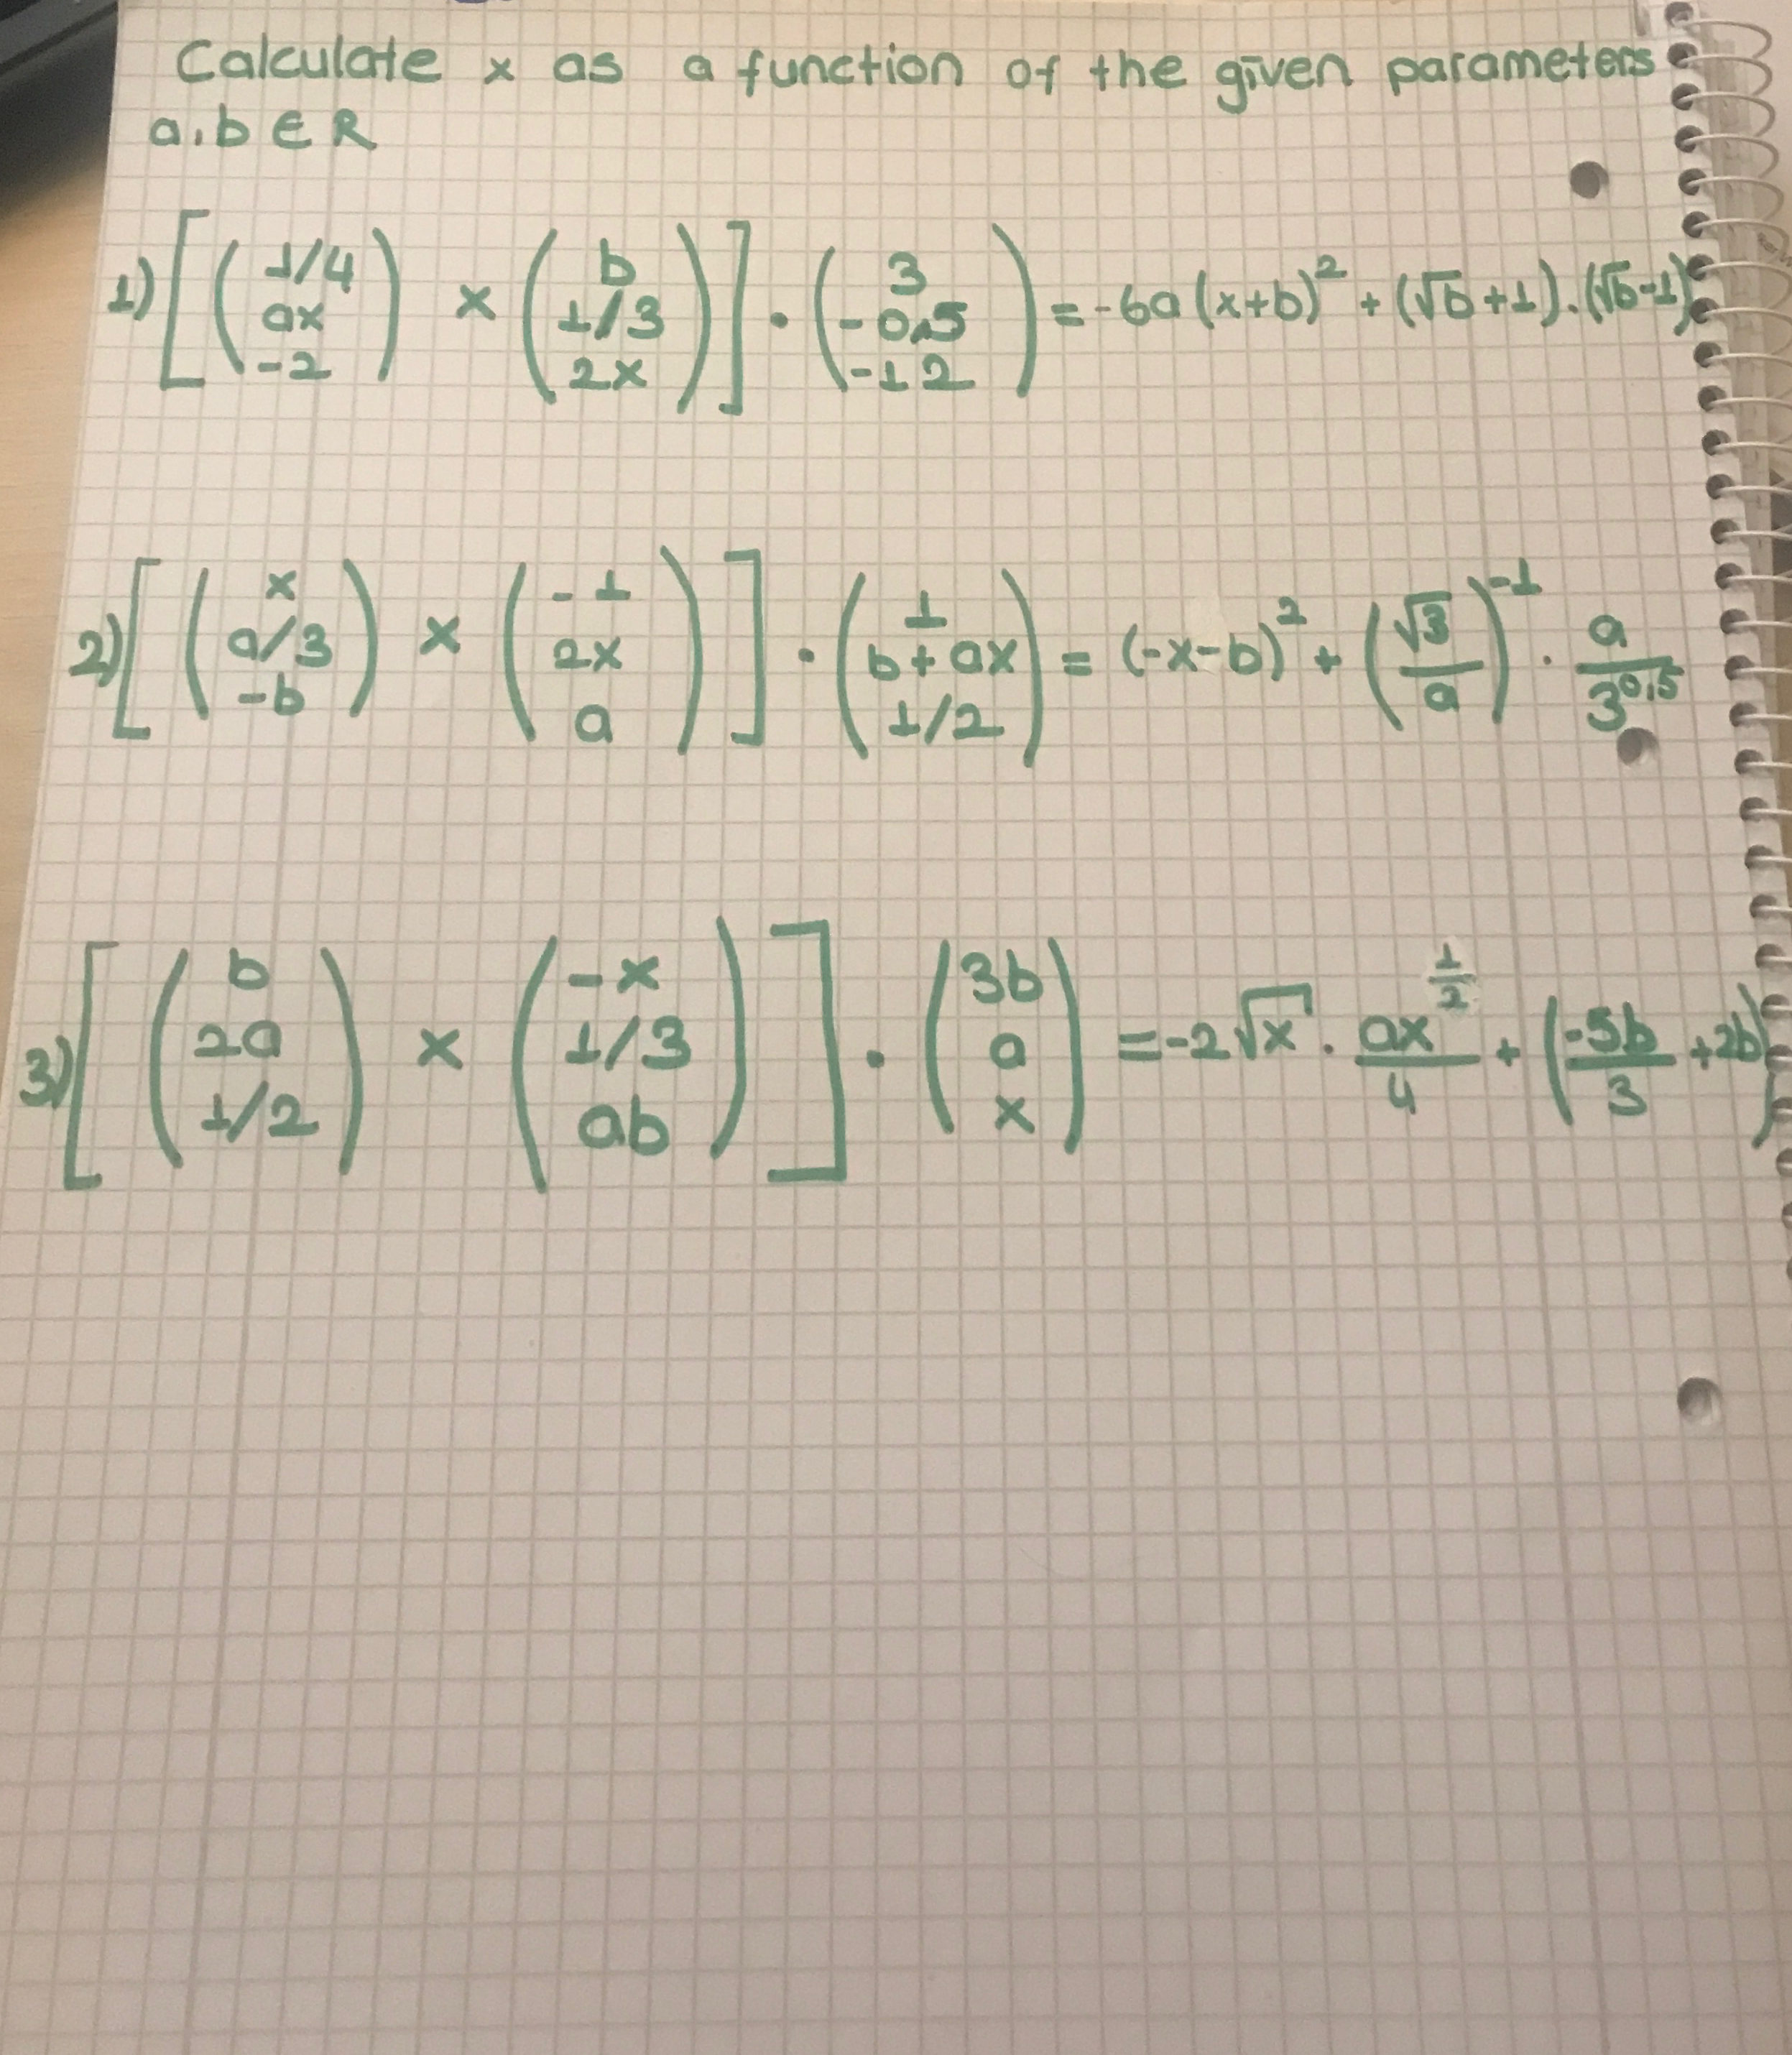 Calculate x as a function of the given parameters
a,b ∈ R
1) [ ( 1/4 ; ax ; -2 ) × ( b ; 1/3 ; 2x ) ] · ( 3 ; -0,5 ; -12 ) = -6a(x+b)² + (√b+1).(√b-1)
2) [ ( x ; a/3 ; -b ) × ( -1 ; 2x ; a ) ] · ( 1 ; b+ax ; 1/2 ) = (-x-b)² + (√3/a)⁻¹ · a/3^0,5
3) [ ( b ; 2a ; 1/2 ) × ( -x ; 1/3 ; ab ) ] · ( 3b ; a ; x ) = -2√x · ax^(1/2)/4 + (-5b/3 + 2b)